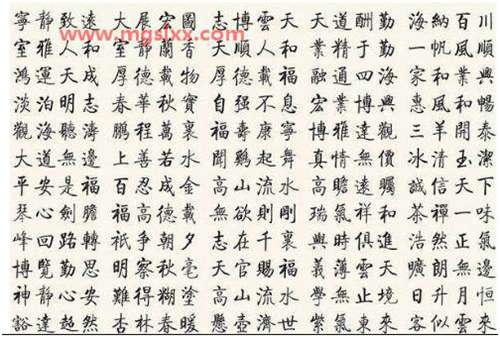 www.mgslxx.com
寧靜致遠 大展宏圖 志博雲天 天道酬勤 海納百川
室雅人和 室靜蘭香 大順人和 業精于勤 一帆風順
鴻運天成 厚德載物 厚德載福 融通四海 家和業興
淡泊明志 春華秋實 自强不息 宏業博興 惠風和暢
觀海聽濤 鵬程萬裏 福壽康寧 博雅達觀 三羊開泰
大道無邊 上善若水 聞鷄起舞 真情無價 冰清玉潔
平安是福 百忍成金 高山流水 高瞻遠矚 誠信天下
琴心劍膽 福高德載 無欲則剛 瑞氣祥和 茶禪一味
峰回路轉 祇争朝夕 志在千裏 與時俱進 浩然正氣
博覽勤思 明察秋毫 天官賜福 義薄雲天 曠朗無邊
神靜心安 難得糊塗 高山流水 學無止境 日升月恒
豁達超然 杏林春暖 懸壺濟世 紫氣東來 客似雲來